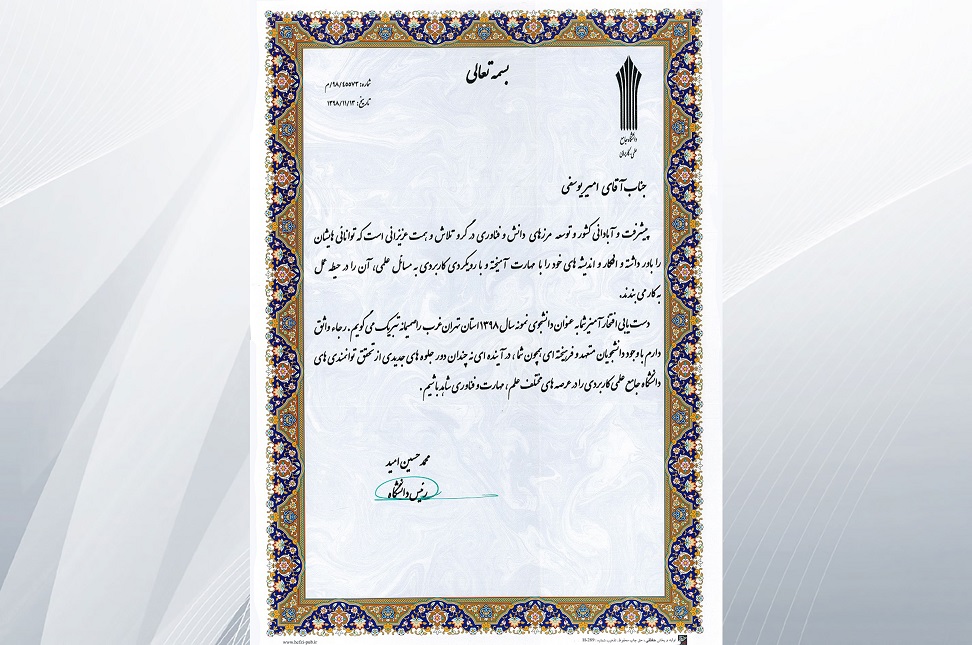 بسمه تعالی
شماره: ۹۸/۴۵۵۷۳/م
تاریخ: ۱۳۹۸/۱۱/۱۳
دانشگاه جامع
علمی کاربردی
جناب آقای امیر یوسفی
پیشرفت و آبادانی کشور و توسعه مرزهای دانش و فناوری در گرو تلاش و همت عزیزانی است که توانائی هایشان
را باور داشته و افکار و اندیشه های خود را با مهارت آمیخته و با رویکردی کاربردی به مسائل علمی، آن را در حیطه عمل
به کار می بندند.
دست یابی افتخار آمیز شما به عنوان دانشجوی نمونه سال ۱۳۹۸ استان تهران غرب را صمیمانه تبریک می گویم. رجاء واثق
دارم با وجود دانشجویان متعهد و فرهیخته ای همچون شما، در آینده ای نه چندان دور جلوه های جدیدی از تحقق توانمندی های
دانشگاه جامع علمی کاربردی را در عرصه های مختلف علم، مهارت و فناوری شاهد باشیم.
محمد حسین امید
رئیس دانشگاه
www.hefzi-pub.ir